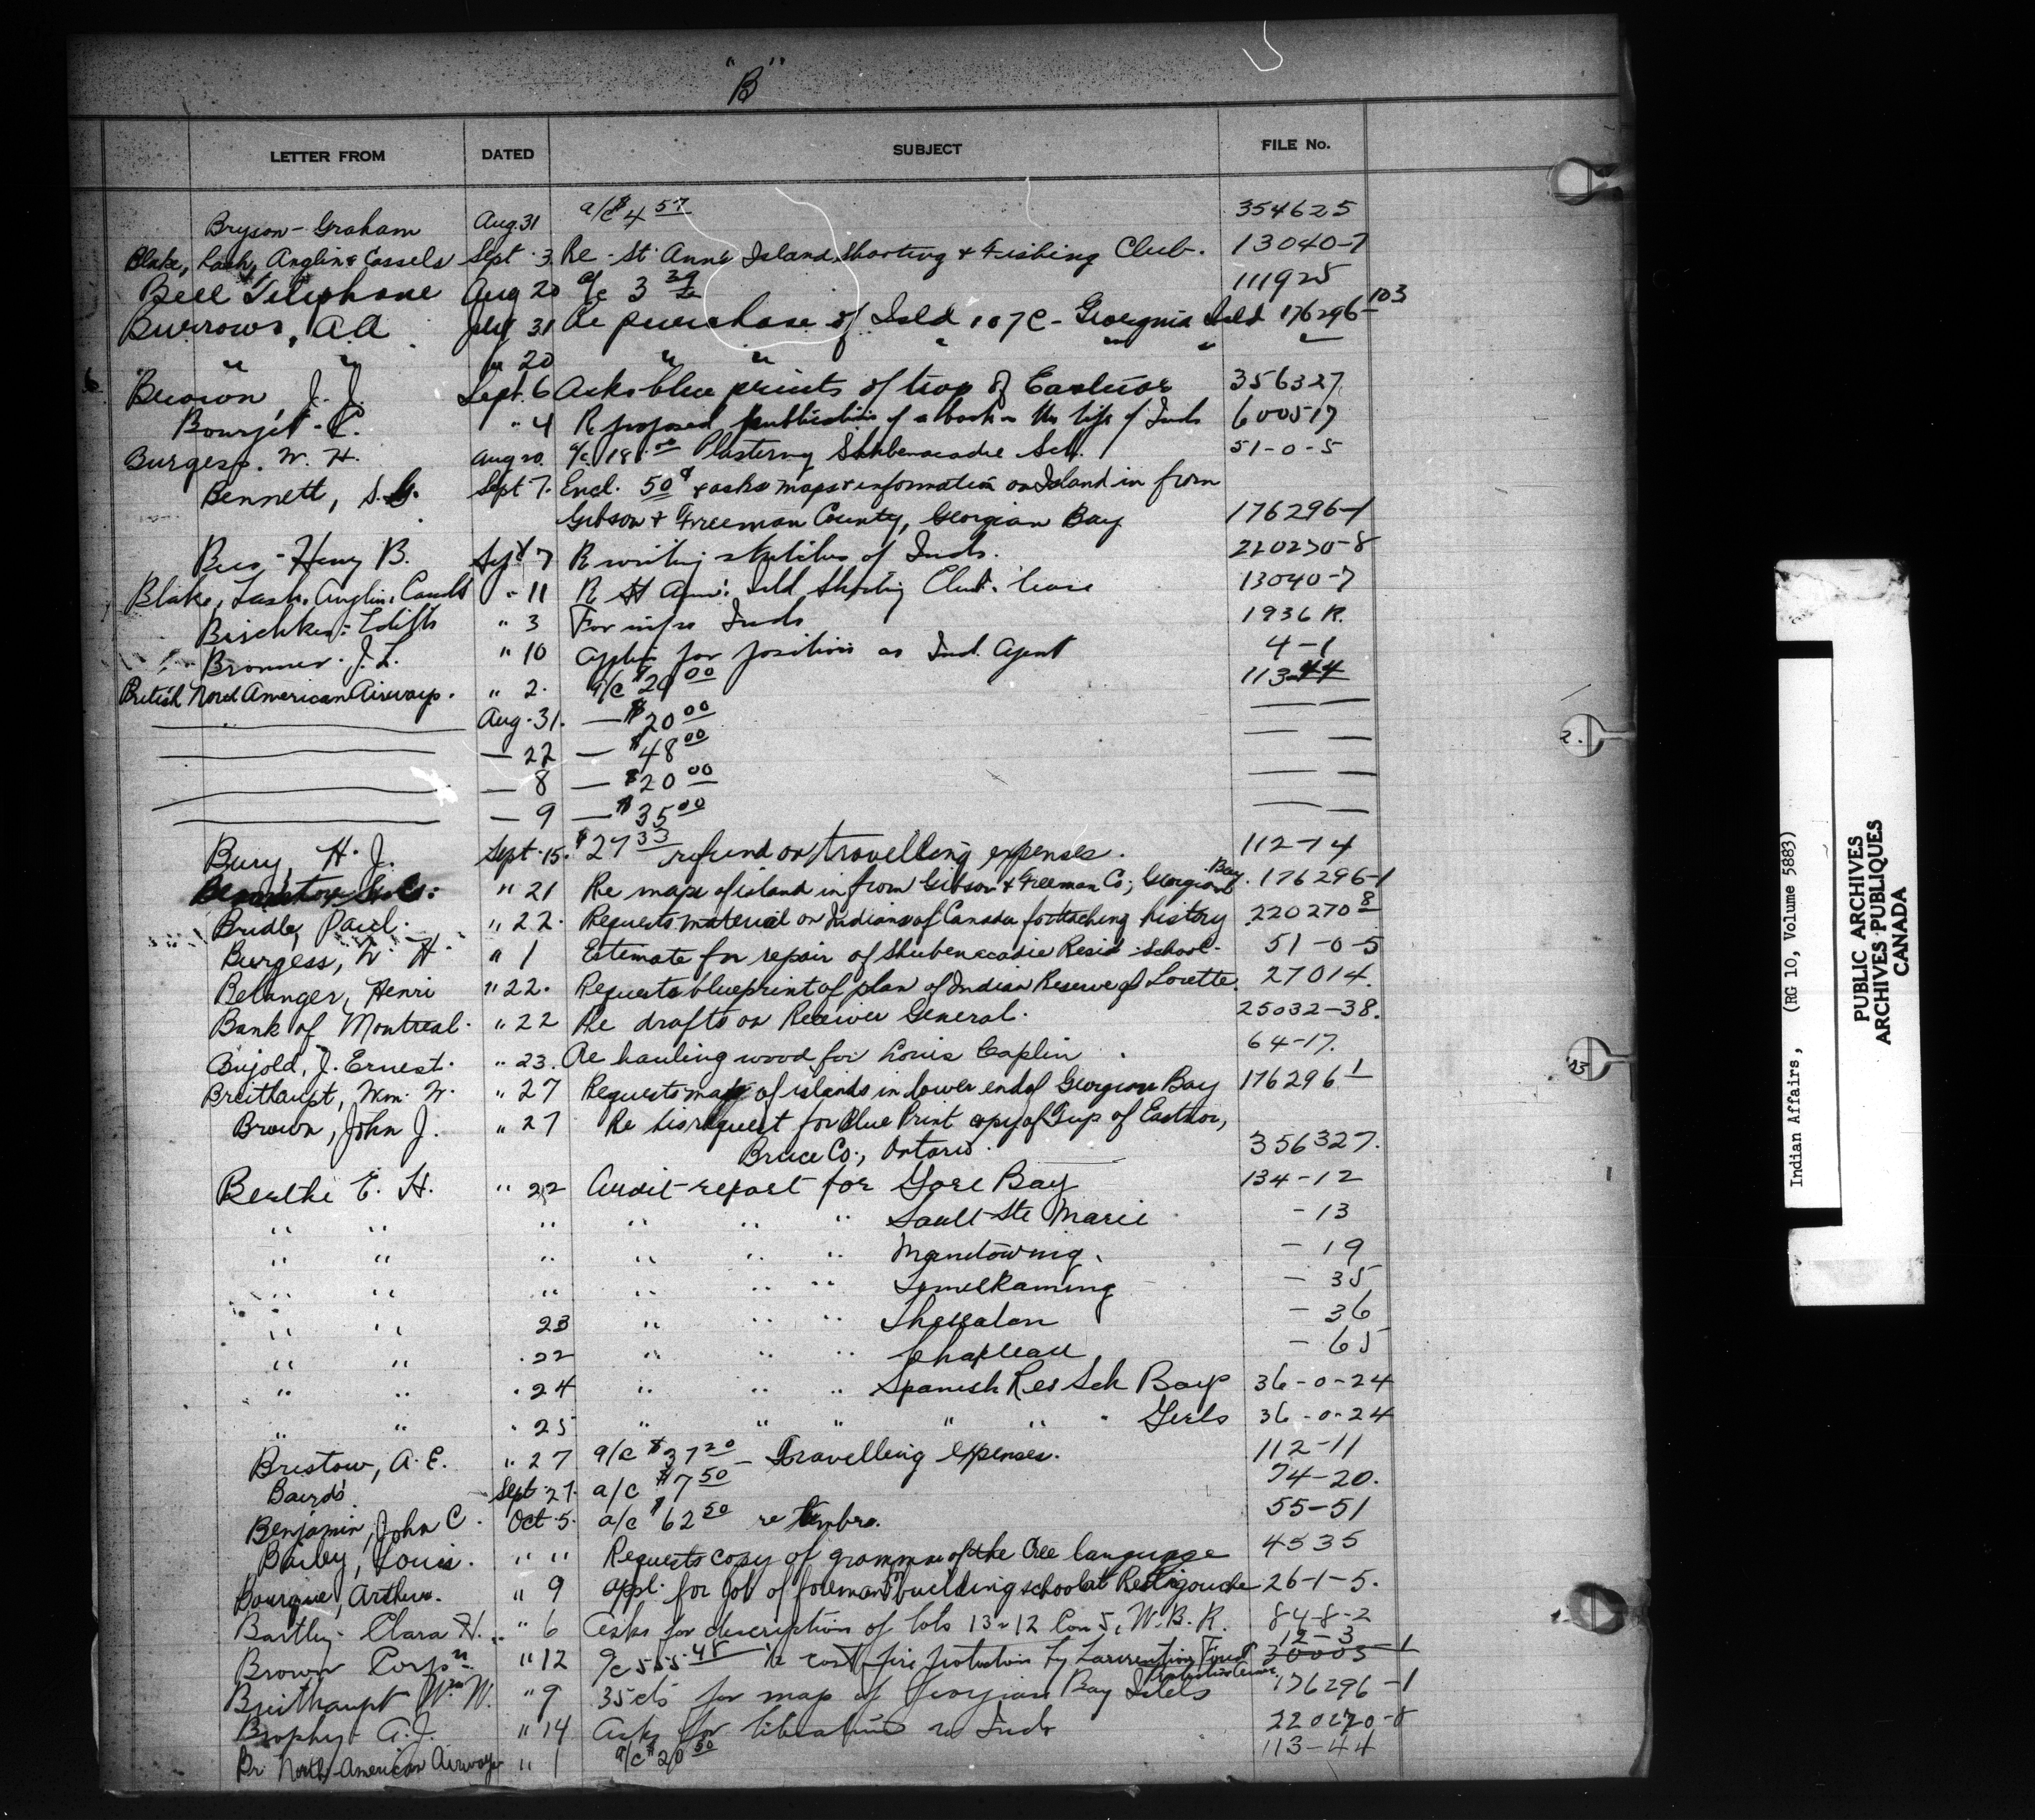 "B"
LETTER FROM DATED SUBJECT FILE No.
Bryson-Graham Aug. 31 a/c $4 57 354625
Blake, Lash, Anglin & Cassels Sept. 3 Re - St. Anne Island Shooting & Fishing Club. 13040-7
Bell Telephone Aug 20 a/c 3 111925
Burrows, A.A July 31 Re purchase of Isld 107C - Georgina Isld 176296-103
" " 20 " "
Brown, J. J. Sept. 6 Asks blue prints of twp of Eastnor 356327
" 4 R proposed publication of a book on the life of Inds 600517
Burgess. W. H. Aug 20. a/c 18.00 Plastering Shubenacadie Sch. 51-0-5
Bennett, S. G. Sept 7. Encl. 50¢ & asks maps & information on Island in from
Gibson & Freeman County, Georgian Bay 176296-1
Henry B. Sept 7 R writing sketches of Inds. 220270-8
Blake, Lash, Anglin, Cassels " 11 R St Ann's Isld Shooting Club lease 13040-7
" 3 For info Inds 1936 R.
Bronner. J. L. " 10 Applic for position as Ind. Agent 4-1
British North American Airways. " 2. a/c $20 00 113-44
— " — Aug. 31. — $20 00 — —
— — 22 — $48 00 — —
— — 8 — $20 00 — —
— — 9 — $35 00 — —
Bury, H. J. Sept. 15. $27 33 refund on travelling expenses. 112-14
" 21 Re maps of island in from Gibson & Freeman Co; Georgian Bay. 176296-1
Bridle, Paul. " 22. Requests material on Indians of Canada for teaching history 220270-8
Burgess, W H " 1 Estimate for repair of Shubenacadie Resid. School. 51-0-5
Belanger, Henri " 22. Requests blueprint of plan of Indian Reserve of Lorette. 27014.
Bank of Montreal. " 22 Re drafts on Receiver General. 25032-38.
Bujold, J. Ernest. " 23. Re hauling wood for Louis Caplin. 64-17.
Breithaupt, Wm. W. " 27 Requests map of islands in lower end of Georgian Bay 176296-1
Brown, John J. " 27 Re his request for Blue Print copy of Twp of Eastnor,
Bruce Co., Ontario. 356327.
Berthe E. H. " 22 Audit report for Gore Bay 134-12
" " " " " " Sault Ste Marie -13
" " " " " " Manitowning. - 19
" " " " " " Temiskaming - 35
" " 23 " " " Thessalon - 36
" " .22 " " " Chapleau - 65
" " .24 " " " Spanish Res Sch Boys 36-0-24
" " .25 " " " " " " Girls 36-0-24
Bristow, A. E. " 27 a/c $37 20 - Travelling expenses. 112-11
Bairds Sept. 27. a/c $7 50 74-20.
Benjamin, John C. Oct. 5. a/c $62 50 re 55-51
Bailey, Louis. " " Requests copy of grammar of the Cree language 4535
Bourque, Arthur. " 9 Appl. for job of foreman building school at Restigouche 26-1-5.
Bartley. Clara H. " 6 Asks for description of lots 13 & 12 Con 5, W. B. R. 84-8-2
Brown Corpn " 12 a/c 555.48 re cost fire protection by Laurentian Forest Protective Assoc. 12-3 30003-1
Breithaupt Wm W. " 9 35cts for map of Georgian Bay Islds 176296-1
Brophy. A. J. " 14 Asks for literature re Inds 220270-8
Br North American Airways " 1 a/c $20 50 113-44
Indian Affairs, (RG 10, Volume 5883)
PUBLIC ARCHIVES
ARCHIVES PUBLIQUES
CANADA